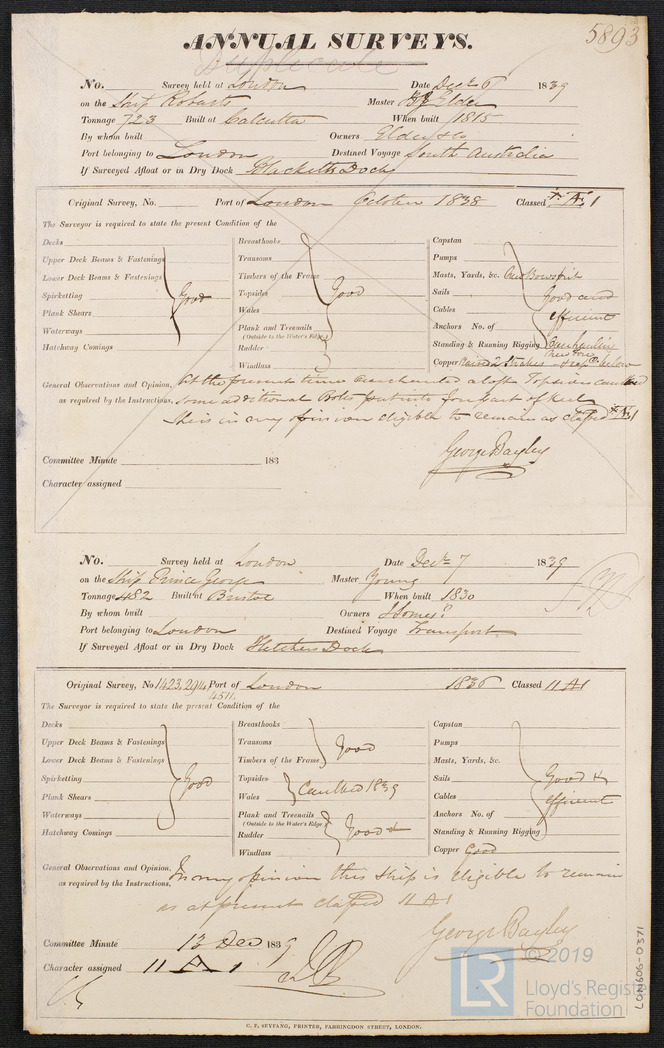 5893
ANNUAL SURVEYS.
Duplicate
No. Survey held at London Date Decr 6 1839
on the Ship Robarts Master Elder
Tonnage 723 Built at Calcutta When built 1815
By whom built Owners Elder & Co
Port belonging to London Destined Voyage South Australia
If Surveyed Afloat or in Dry Dock Blacketts Dock
Original Survey, No. Port of London October 1838 Classed A 1
The Surveyor is required to state the present Condition of the
Decks Breasthooks Capstan
Upper Deck Beams & Fastenings Transoms Pumps
Lower Deck Beams & Fastenings Timbers of the Frame Masts, Yards, &c. Bowsprit
Spirketting Good Topsides Good Sails Good and
Plank Shears Wales Cables efficient
Waterways Plank and Treenails Anchors No. of
(Outside to the Water's Edge)
Hatchway Comings Rudder Standing & Running Rigging
Windlass Copper 2 Strakes
General Observations and Opinion, At the present time aloft Topsides caulked
as required by the Instructions, some additional Bolts part of keel
She is in my opinion eligible to remain as classed A 1
George Bayley
Committee Minute 183
Character assigned
No. Survey held at London Date Decr 7 1839
on the Ship Prince George Master Young
Tonnage 482 Built at Bristol When built 1830
By whom built Owners
Port belonging to London Destined Voyage Transport
If Surveyed Afloat or in Dry Dock Fletchers Dock
Original Survey, No 1423, 294, Port of London 1836 Classed 11 A 1
4511
The Surveyor is required to state the present Condition of the
Decks Breasthooks Capstan
Upper Deck Beams & Fastenings Transoms Good Pumps
Lower Deck Beams & Fastenings Timbers of the Frame Masts, Yards, &c.
Spirketting Good Topsides Caulked 1839 Sails Good &
Plank Shears Wales Cables efficient
Waterways Plank and Treenails Anchors No. of
(Outside to the Water's Edge)
Hatchway Comings Rudder Good Standing & Running Rigging
Windlass Copper Good
General Observations and Opinion, In my opinion this Ship is eligible to remain
as required by the Instructions, as at present classed 11 A 1
George Bayley
Committee Minute 13 Dec 1839
Character assigned 11 A 1
C. F. SEYFANG, PRINTER, FARRINGDON STREET, LONDON.
LR
© 2019
Lloyd's Register
Foundation
LON606-0371